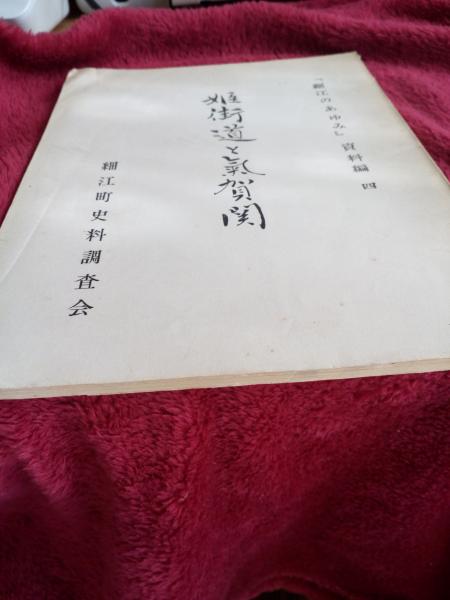 「細江のあゆみ」資料編 四
姫街道と氣賀関
細江町史料調査会